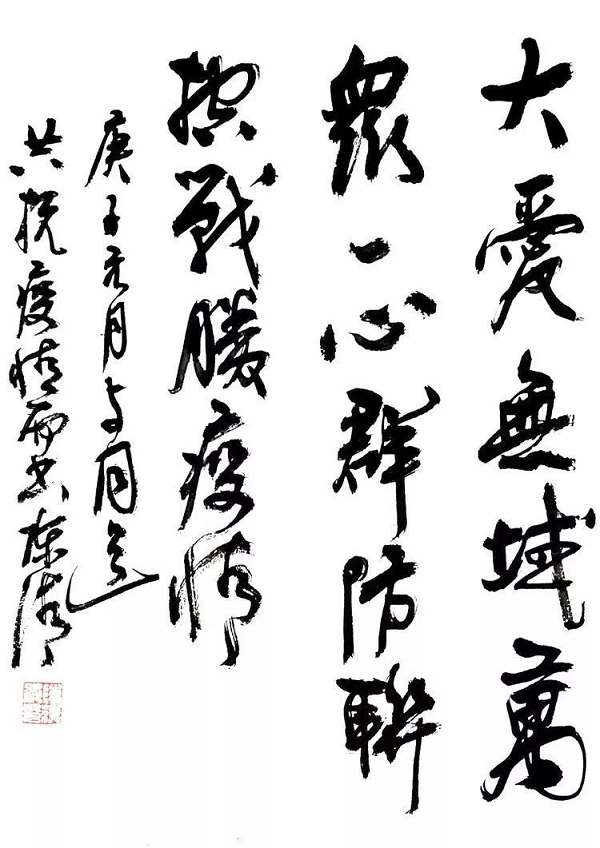 大愛無域萬
眾一心群防聯
控戰勝疫情
庚子元月与同道
共抗疫情而书